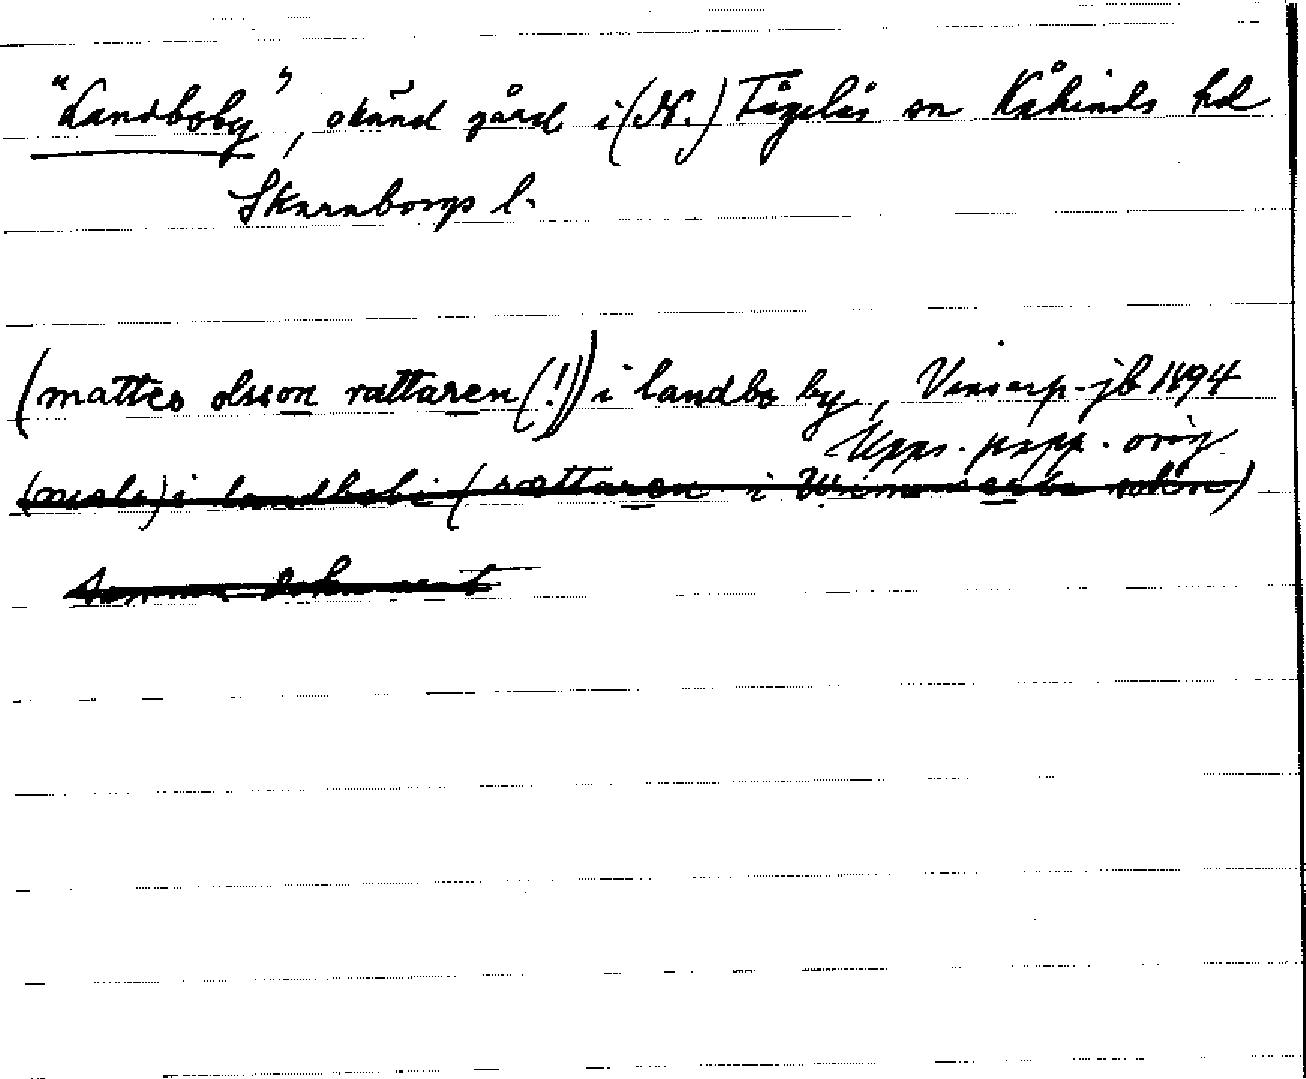 "Landboby", okänd gård i (N.) Fågelås sn Kåkinds hd
Skaraborgs l.
(mattes olsson rattaren (!)) i landbo by, Vinsarp-jb 1494
Upps. papp. orig
i landbobi (rættaren i
samma dokument